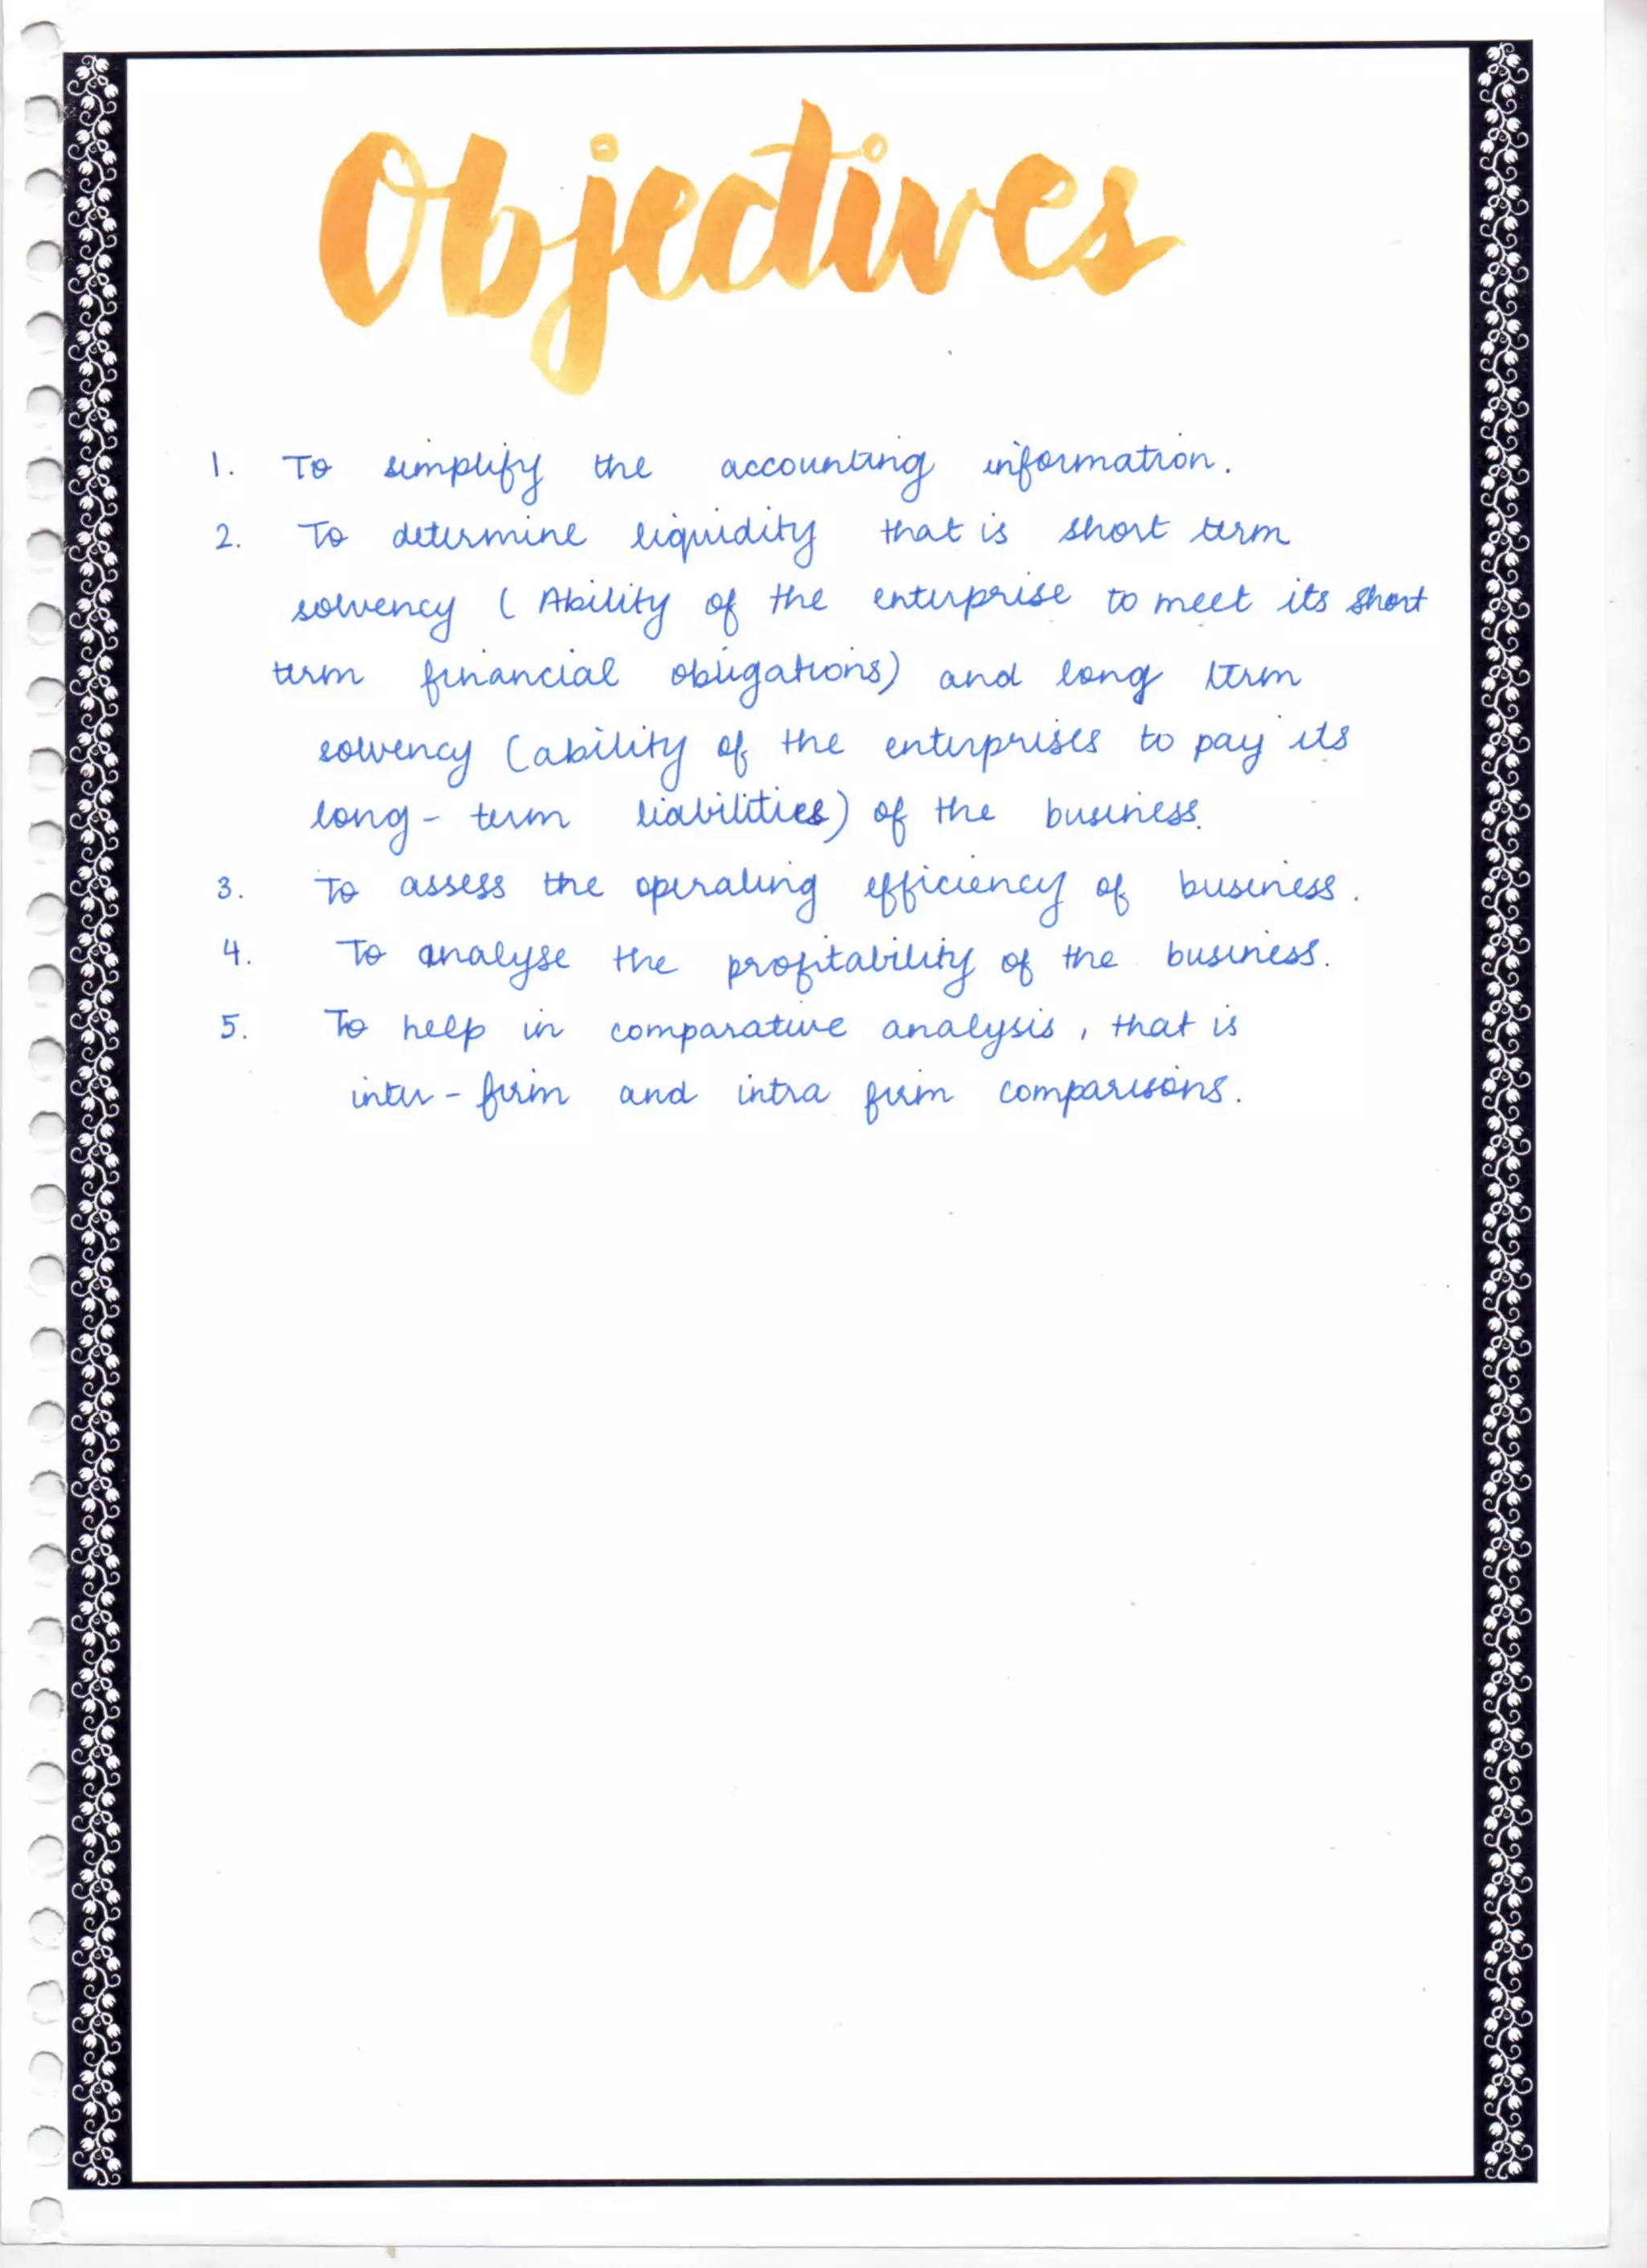 Objectives
1. To simplify the accounting information.
2. To determine liquidity that is short term
solvency ( Ability of the enterprise to meet its short
term financial obligations) and long term
solvency (ability of the enterprises to pay its
long - term liabilities) of the business.
3. To assess the operating efficiency of business.
4. To analyse the profitability of the business.
5. To help in comparative analysis, that is
inter - firm and intra firm comparisons.